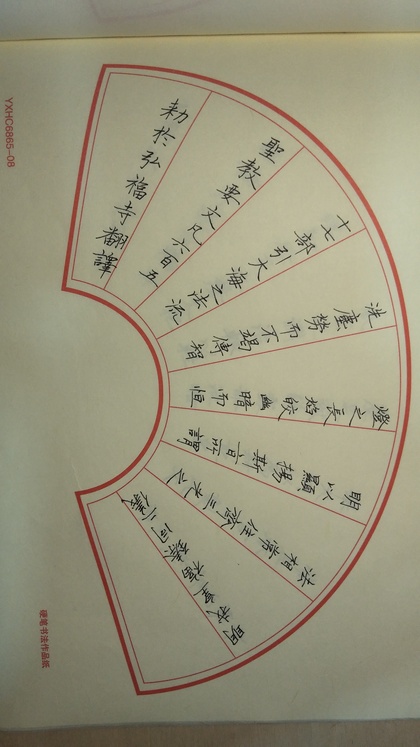 勅於弘福寺翻譯
聖教要文凡六百五
十七部引大海之法流
洗塵勞而不竭傳智
燈之長焰皎幽暗而恒
明以顯揚斯旨所謂
法相常住齊三光之
明我皇福臻同二儀
YXHC6865-08
硬笔书法作品纸